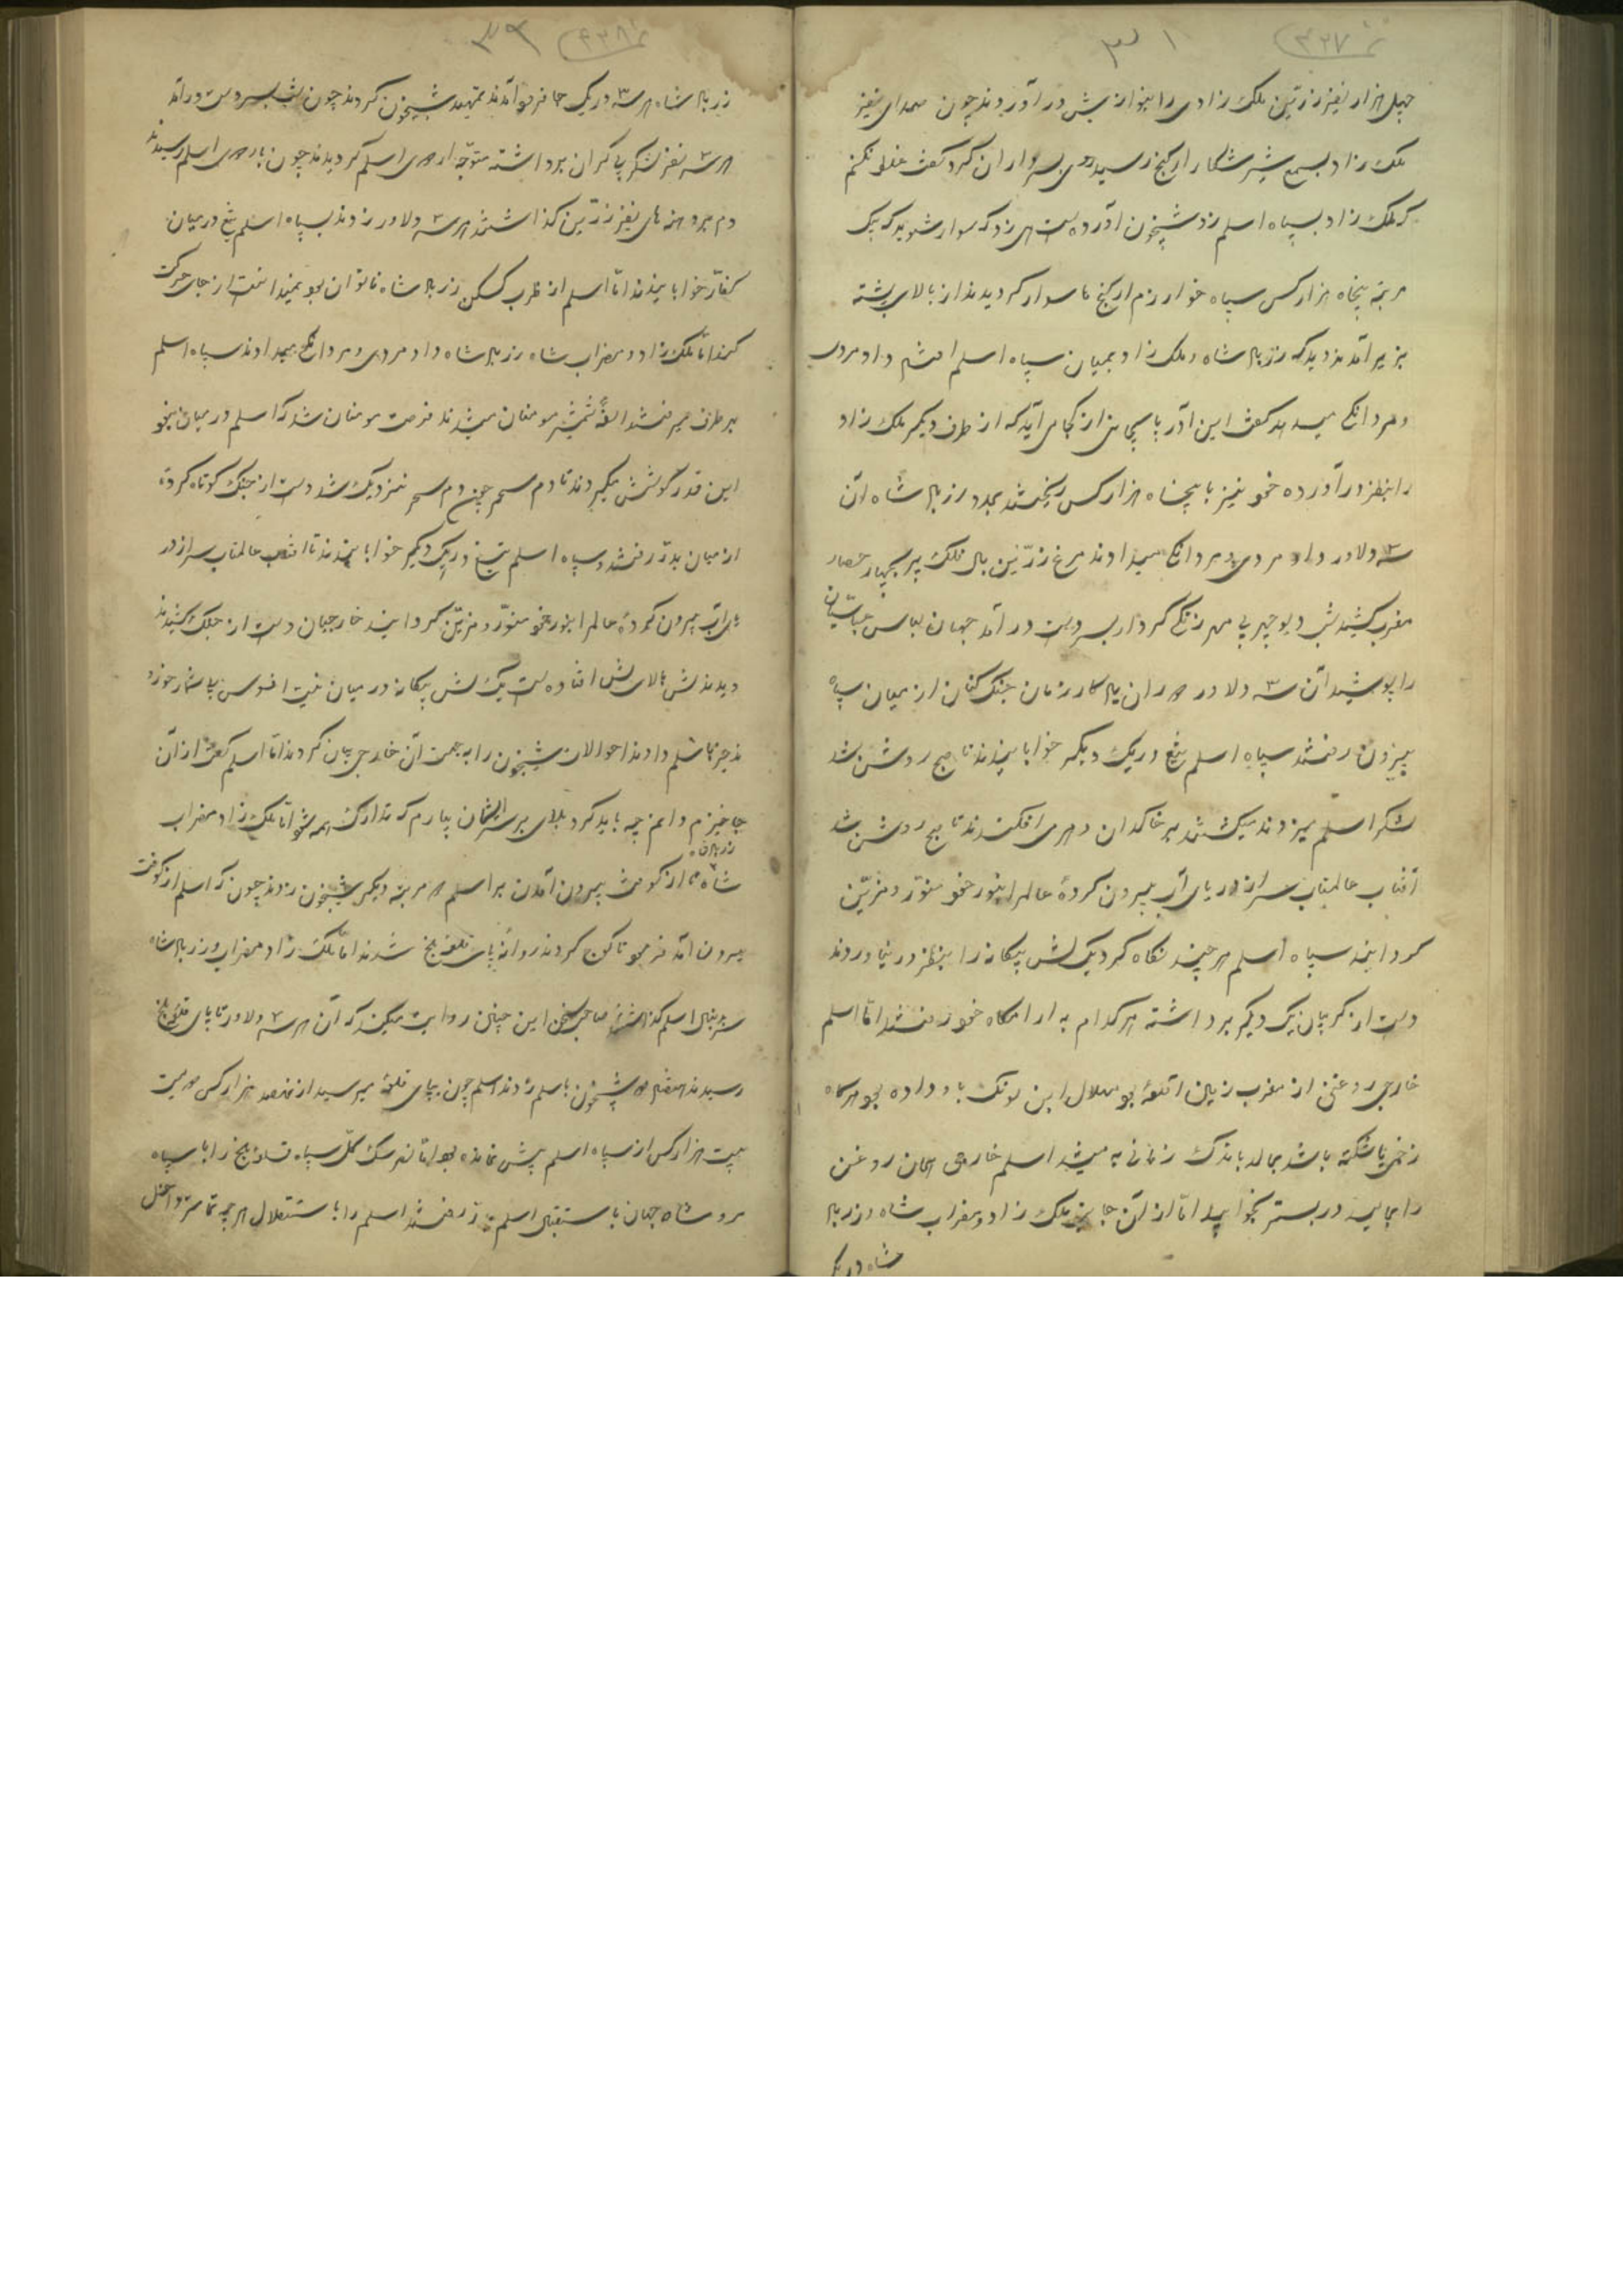 چهل هزار نفیر زرین ملک زادی را بنوازش در آوردند چون صدای نفیر
ملک زاد بسمع شیر شکار ارکنج رسید روی بسرداران کرد کفت غلط نکنم
که ملک زاد بسپاه اسلم زد شبخون آورده است زد که سوار شوید که یک
مرتبه پنجاه هزار کس سپاه خوارزم ارکنج تا سوار کردیدند از بالای پشته
بزیر آمدند دید که زرباله شاه و ملک زاد بمیان سپاه اسلم داد مردی
و مردانکی میدهد کفت این آدر از کجا می آید که از طرف دیکر ملک زاد
را بنظر در آورده خود نیز با پنجاه هزار کس ریختند بمدد زرباله شاه آن
سه دلاور داد مردی و مردانکی میدادند مرغ زرین بال فلک بر چهار حصار
مغرب کشید شب دیو چهر بی مهر زنکی کردار بسر دست در آمد جهان لباس عباسیان
را پوشید آن ۳ دلاور جنک کنان از میان سپاه
بیرون رفتند سپاه اسلم تیغ در یک دیکر خوابانیدند تا صبح روشن شد
لشکر اسلم میزدند میکشتند بر خاکدان دهر می افکندند تا صبح روشن شد
آفتاب عالمتاب سر از دریای آب بیرون کرده عالم را بنور خود منور و مزین
کردانید سپاه اسلم هر چند نکاه کرد یک لش بیکانه را بنظر در نیاوردند
دست از کریبان یک دیکر برداشته هر کدام به آرامکاه خود رفتند اما اسلم
خارجی روغنی از مغرب زمین بو هلال این باو داده بود هرکاه
زخمی یا شکسته باشد بمالد باندک زمانی به میشد اسلم خارجی همان روغن
را مالید در بستر بخوابید اما از آن جانب ملک زاد و مضراب شاه و زرباله
شاه در یک
زرباله شاه هر ۳ در یک جا فرود آمدند تمهید شبخون کردند چون شب بسر دست در آمد
هر ۳ نفر لشکر بی کران برداشته متوجه اردوی اسلم کردیدند چون باردوی اسلم رسیدند
دم بر دهنهای نفیر زرین کذاشتند هر سه دلاور زدند بسپاه اسلم تیغ در میان
کفار خوابانیدند اما اسلم از ضرب زرباله شاه ناتوان بود نمیتوانست از جای حرکت
کند اما ملک زاد و مضراب شاه زرباله شاه داد مردی و مردانکی میدادند سپاه اسلم
بهر طرف میرفتند شمشیر مومنان میشدند فرصت مومنان شد که اسلم در میان نبود
این قدر کوشش بکردند تا دم سحر چون دم سحر نزدیک شد دست از جنک کوتاه کرده
از میان بدر رفتند سپاه اسلم تیغ در یک دیکر خوابانیدند تا آفتاب عالمتاب سر از در
یای آب بیرون کرده عالم را بنور خود منور و مزین کردانید خارجیان دست از جنک کشیدند
دیدند لش بالای لش افتاده است یک لش بیکانه در میان نیست افسوس بی شمار خوردند
خبر باسلم دادند احوالات شبخون را بجهت آن خارجی بیان کردند اما اسلم کفت از آن
جا خیزم دانم چه باید کرد بلای بر سر ایشان بیارم که تدارک همه شود اما ملک زاد مضراب
زرباله
شاه تا از کوفت بیرون آمدن بر اسلم مرتبه دیکر شبخون زدند چون که اسلم از کوفت
بیرون آمد فرمود تا کوچ کردند روانه پای قلعه بلخ شدند اما ملک زاد و مضراب و زرباله شاه
سر بدنبال اسلم کذاشتند صاحب سخن این چنین روایت میکند که آن هر سه دلاور تا پای قلعه بلخ
رسیدند شبخون باسلم زدند اسلم چون بپای قلعه میرسید از هزار کس
بیست هزار کس از سپاه اسلم بیش نمانده بود اما سک کل سپاه بلخ را با سپاه
مرو شاه جهان باستقبال اسلم رفتند اسلم را باستقلال هر چه تمامتر داخل